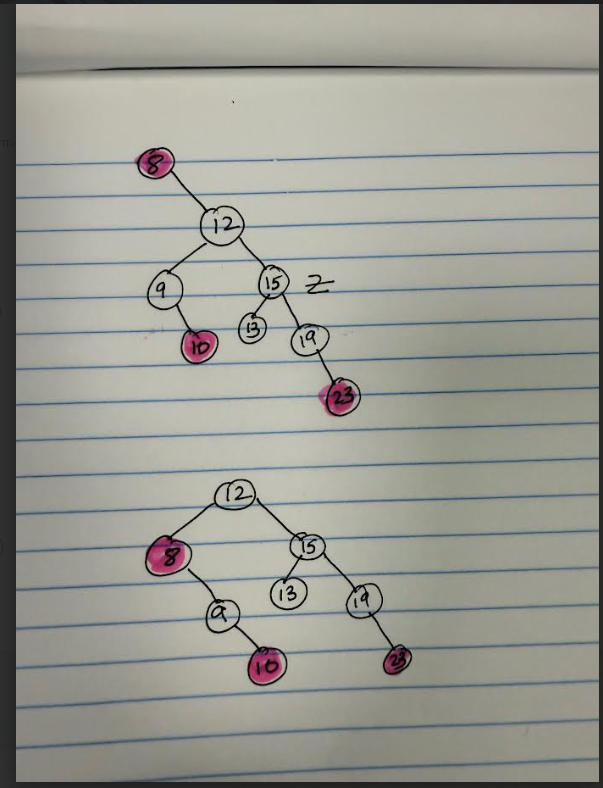 8
12
9 15 Z
13 19
10
23
12
8 15
13 19
9
10 23